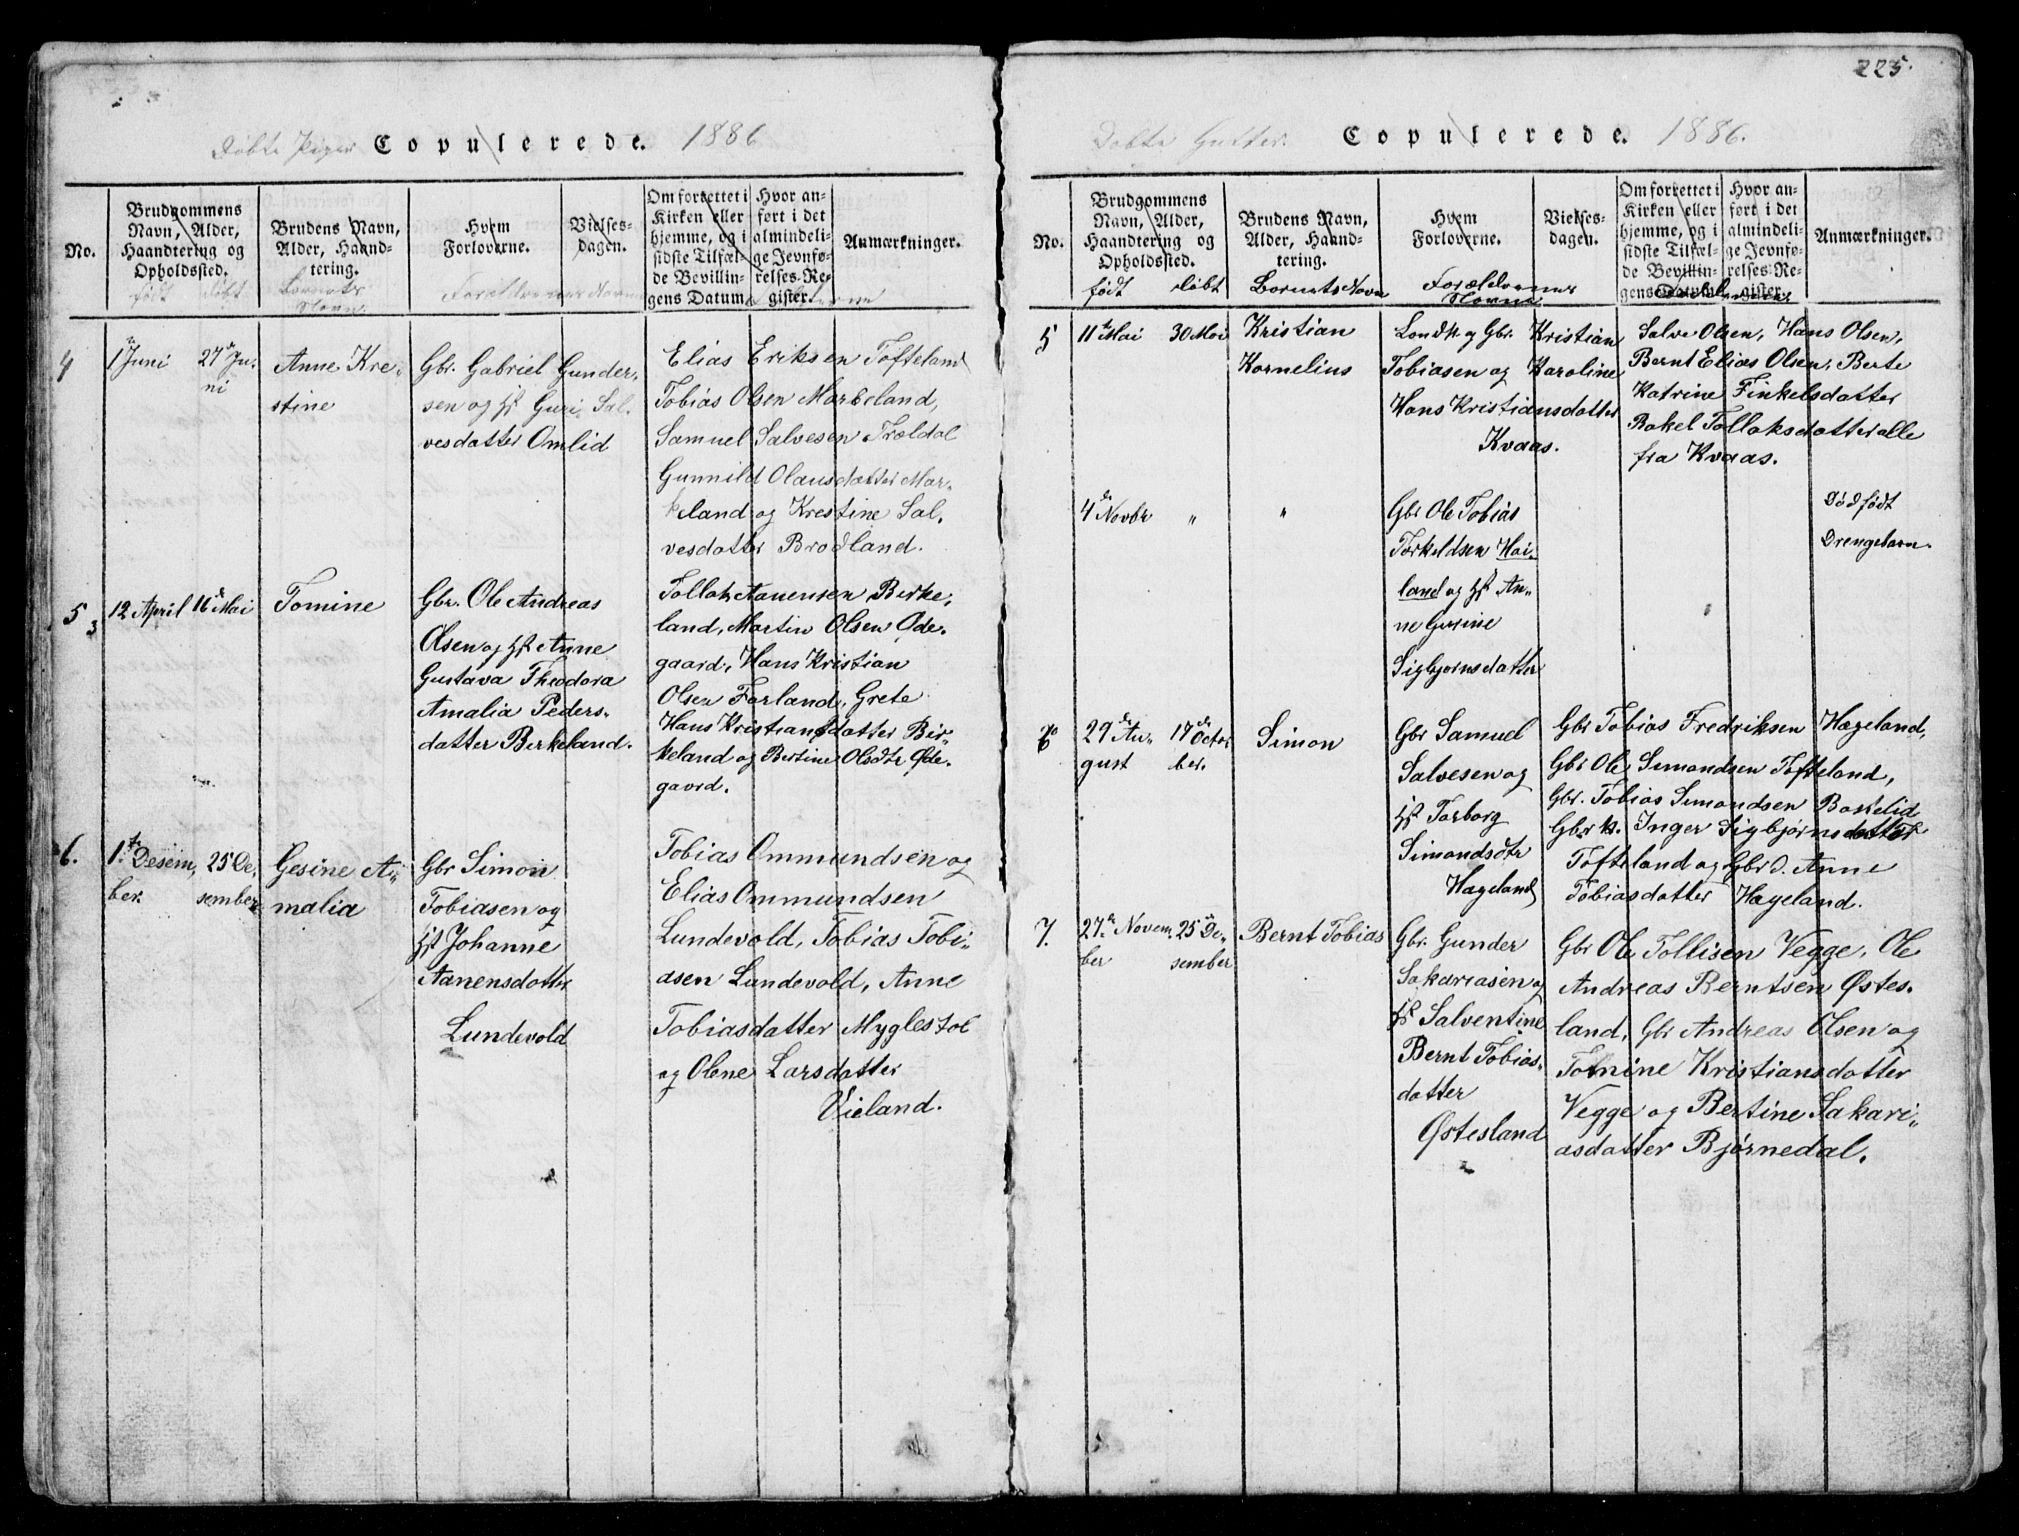 Døbte Piger Copulerede. 1886
No.
Brudgommens Navn, Alder, Haandtering og Opholdssted.
født døbt
Brudens Navn, Alder, Haandtering.
Barnets Navn
Hvem Forloverne.
Forældrenes Navne
Vielses-dagen.
Om forrettet i Kirken eller hjemme, og i sidste Tilfælde Bevillingens Datum.
Hvor anført i det almindelige Jevnførelses-Register.
Anmærkninger.
4
1 Juni 27de Ju-
ni
Anne Kre-
stine
Gbr. Gabriel Gunder-
sen og Guri Sal-
vesdatter Omlid
Elias Eriksen Tofteland
Tobias Olsen Markeland,
Samuel Salvesen Trældal
Gunnild Olausdatter Mar-
keland og Krestine Sal-
vesdatter Brodland.
5
3
12 April 16de Mai
Tomine
Gbr. Ole Andreas
Olsen og Anne
Gustava Theodora
Amalia Peders-
datter Berkeland.
Tollak Aanensen Birke-
land, Martin Olsen Øde-
gaard, Hans Kristian
Olsen Farland, Grete
Hans Kristiansdatter Bir-
keland og Bertine Olsdtr Øde-
gaard.
6.
1ste Desem- 25 De-
ber. sember
Gesine A-
malia
Gbr Simon
Tobiasen og
Johanne
Aanensdatter
Lundevold
Tobias Ommundsen og
Elias Ommundsen
Lundevold, Tobias Tobi-
asen Lundevold, Anne
Tobiasdatter Myglestøl
og Olene Larsdatter
Vieland.
225.
Døbte Gutter. Copulerede. 1886.
No.
Brudgommens Navn, Alder, Haandtering og Opholdssted.
født døbt
Brudens Navn, Alder, Haandtering.
Barnets Navn
Hvem Forloverne.
Forældrenes Navne
Vielses-dagen.
Om forrettet i Kirken eller hjemme, og i sidste Tilfælde Bevillingens Datum.
Hvor anført i det almindelige Jevnførelses-Register.
Anmærkninger.
5
11te Mai 30 Mai
Kristian
Kornelius
Landh og Gbr. Kristian
Tobiasen og Karoline
Hans Kristiansdatter
Kvaas.
Salve Olsen, Hans Olsen,
Bernt Elias Olsen, Berte
Katrine Finkelsdatter
Rakel Tollaksdatter alle
fra Kvaas.
4de Novbr " "
Gbr Ole Tobias
Torkeldsen Hai-
land og An-
ne Gurine
Sigbjørnsdatter
Dødfødt
Drengebarn.
6
29de Au- 17de Octo
gust ber.
Simon
Gbr Samuel
Salvesen og
Torborg
Simondsdtr
Hageland
Gbr Tobias Fredriksen Hægeland,
Gbr Ole Simondsen Tofteland,
Gbr. Tobias Simondsen
Gbr k. Inger Sigbjørnsdatter
Tofteland og Gbr d. Anne
Tobiasdatter Hægeland.
7.
27de Novem- 25de De-
ber sember
Bernt Tobias
Gbr. Gunder
Sakariasen og
Salventine
Bernt Tobias-
datter
Østesland
Gbr Ole Tollisen Vegge, Ole
Andreas Berntsen Østes-
land, Gbr Andreas Olsen og
Tomine Kristiansdatter
Vegge og Bertine Sakari-
asdatter Bjørnedal.